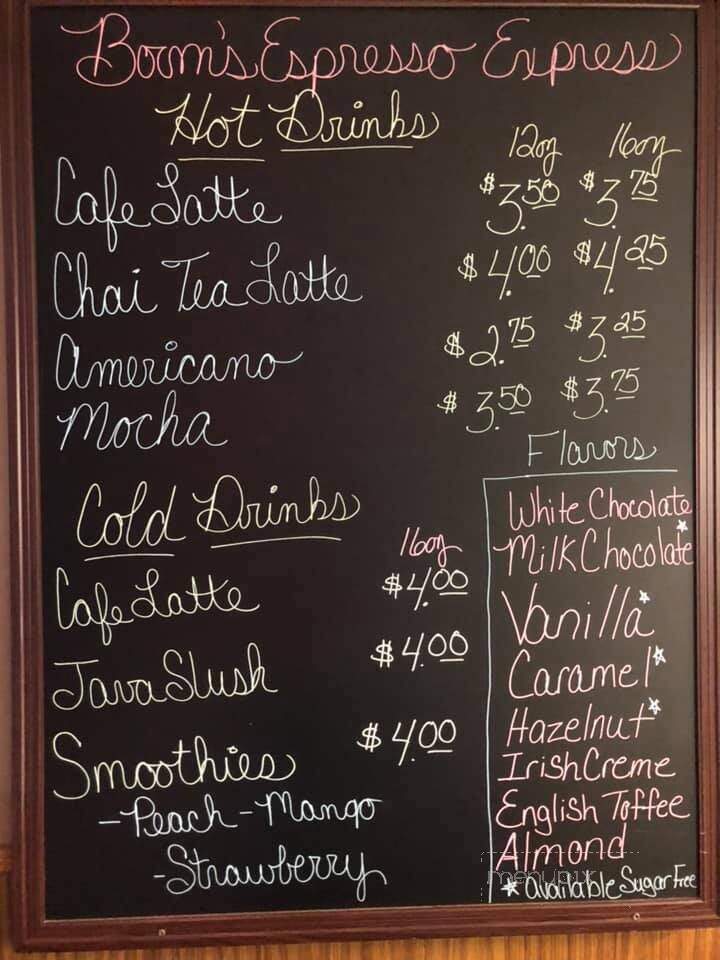 Boom's Espresso Express
Hot Drinks
12oz 16oz
Cafe Latte $3.50 $3.75
Chai Tea Latte $4.00 $4.25
Americano $2.75 $3.25
Mocha $3.50 $3.75
Flavors
White Chocolate
Milk Chocolate*
Vanilla*
Caramel*
Hazelnut*
Irish Creme
English Toffee
Almond
* available Sugar Free
Cold Drinks
16oz
Cafe Latte $4.00
Java Slush $4.00
Smoothies $4.00
-Peach-Mango
-Strawberry
menupix